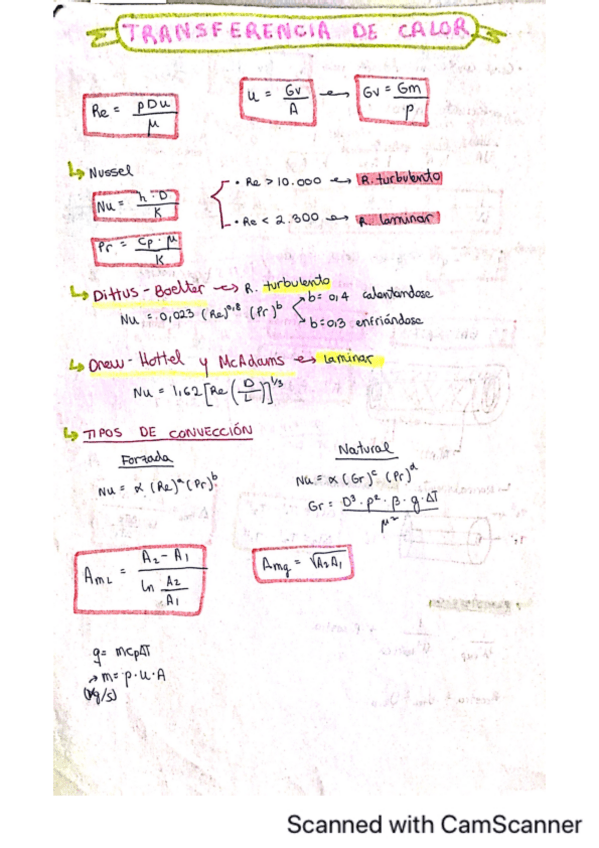 TRANSFERENCIA DE CALOR
Re = ρDu/μ
u = Gv/A → Gv = Gm/ρ
↳ Nussel
Nu = h·D/K
• Re > 10.000 ↔ R. turbulento
• Re < 2.300 ↔ R. laminar
Pr = Cp·μ/K
↳ Dittus-Boelter ↔ R. turbulento
Nu = 0,023 (Re)^0,8 (Pr)^b
b= 0,4 calentandose
b=0,3 enfriándose
↳ Drew-Hottel y McAdams ↔ laminar
Nu = 1,62 [Re (D/L)]^1/3
↳ TIPOS DE CONVECCIÓN
Forzada
Nu = α (Re)^a (Pr)^b
Natural
Nu = α (Gr)^c (Pr)^d
Gr = D³·ρ²·β·g·ΔT/μ²
AmL = A2 - A1 / ln A2/A1
Amg = √A2A1
q= mcpΔT
→ m= ρ·u·A
(kg/s)
Scanned with CamScanner